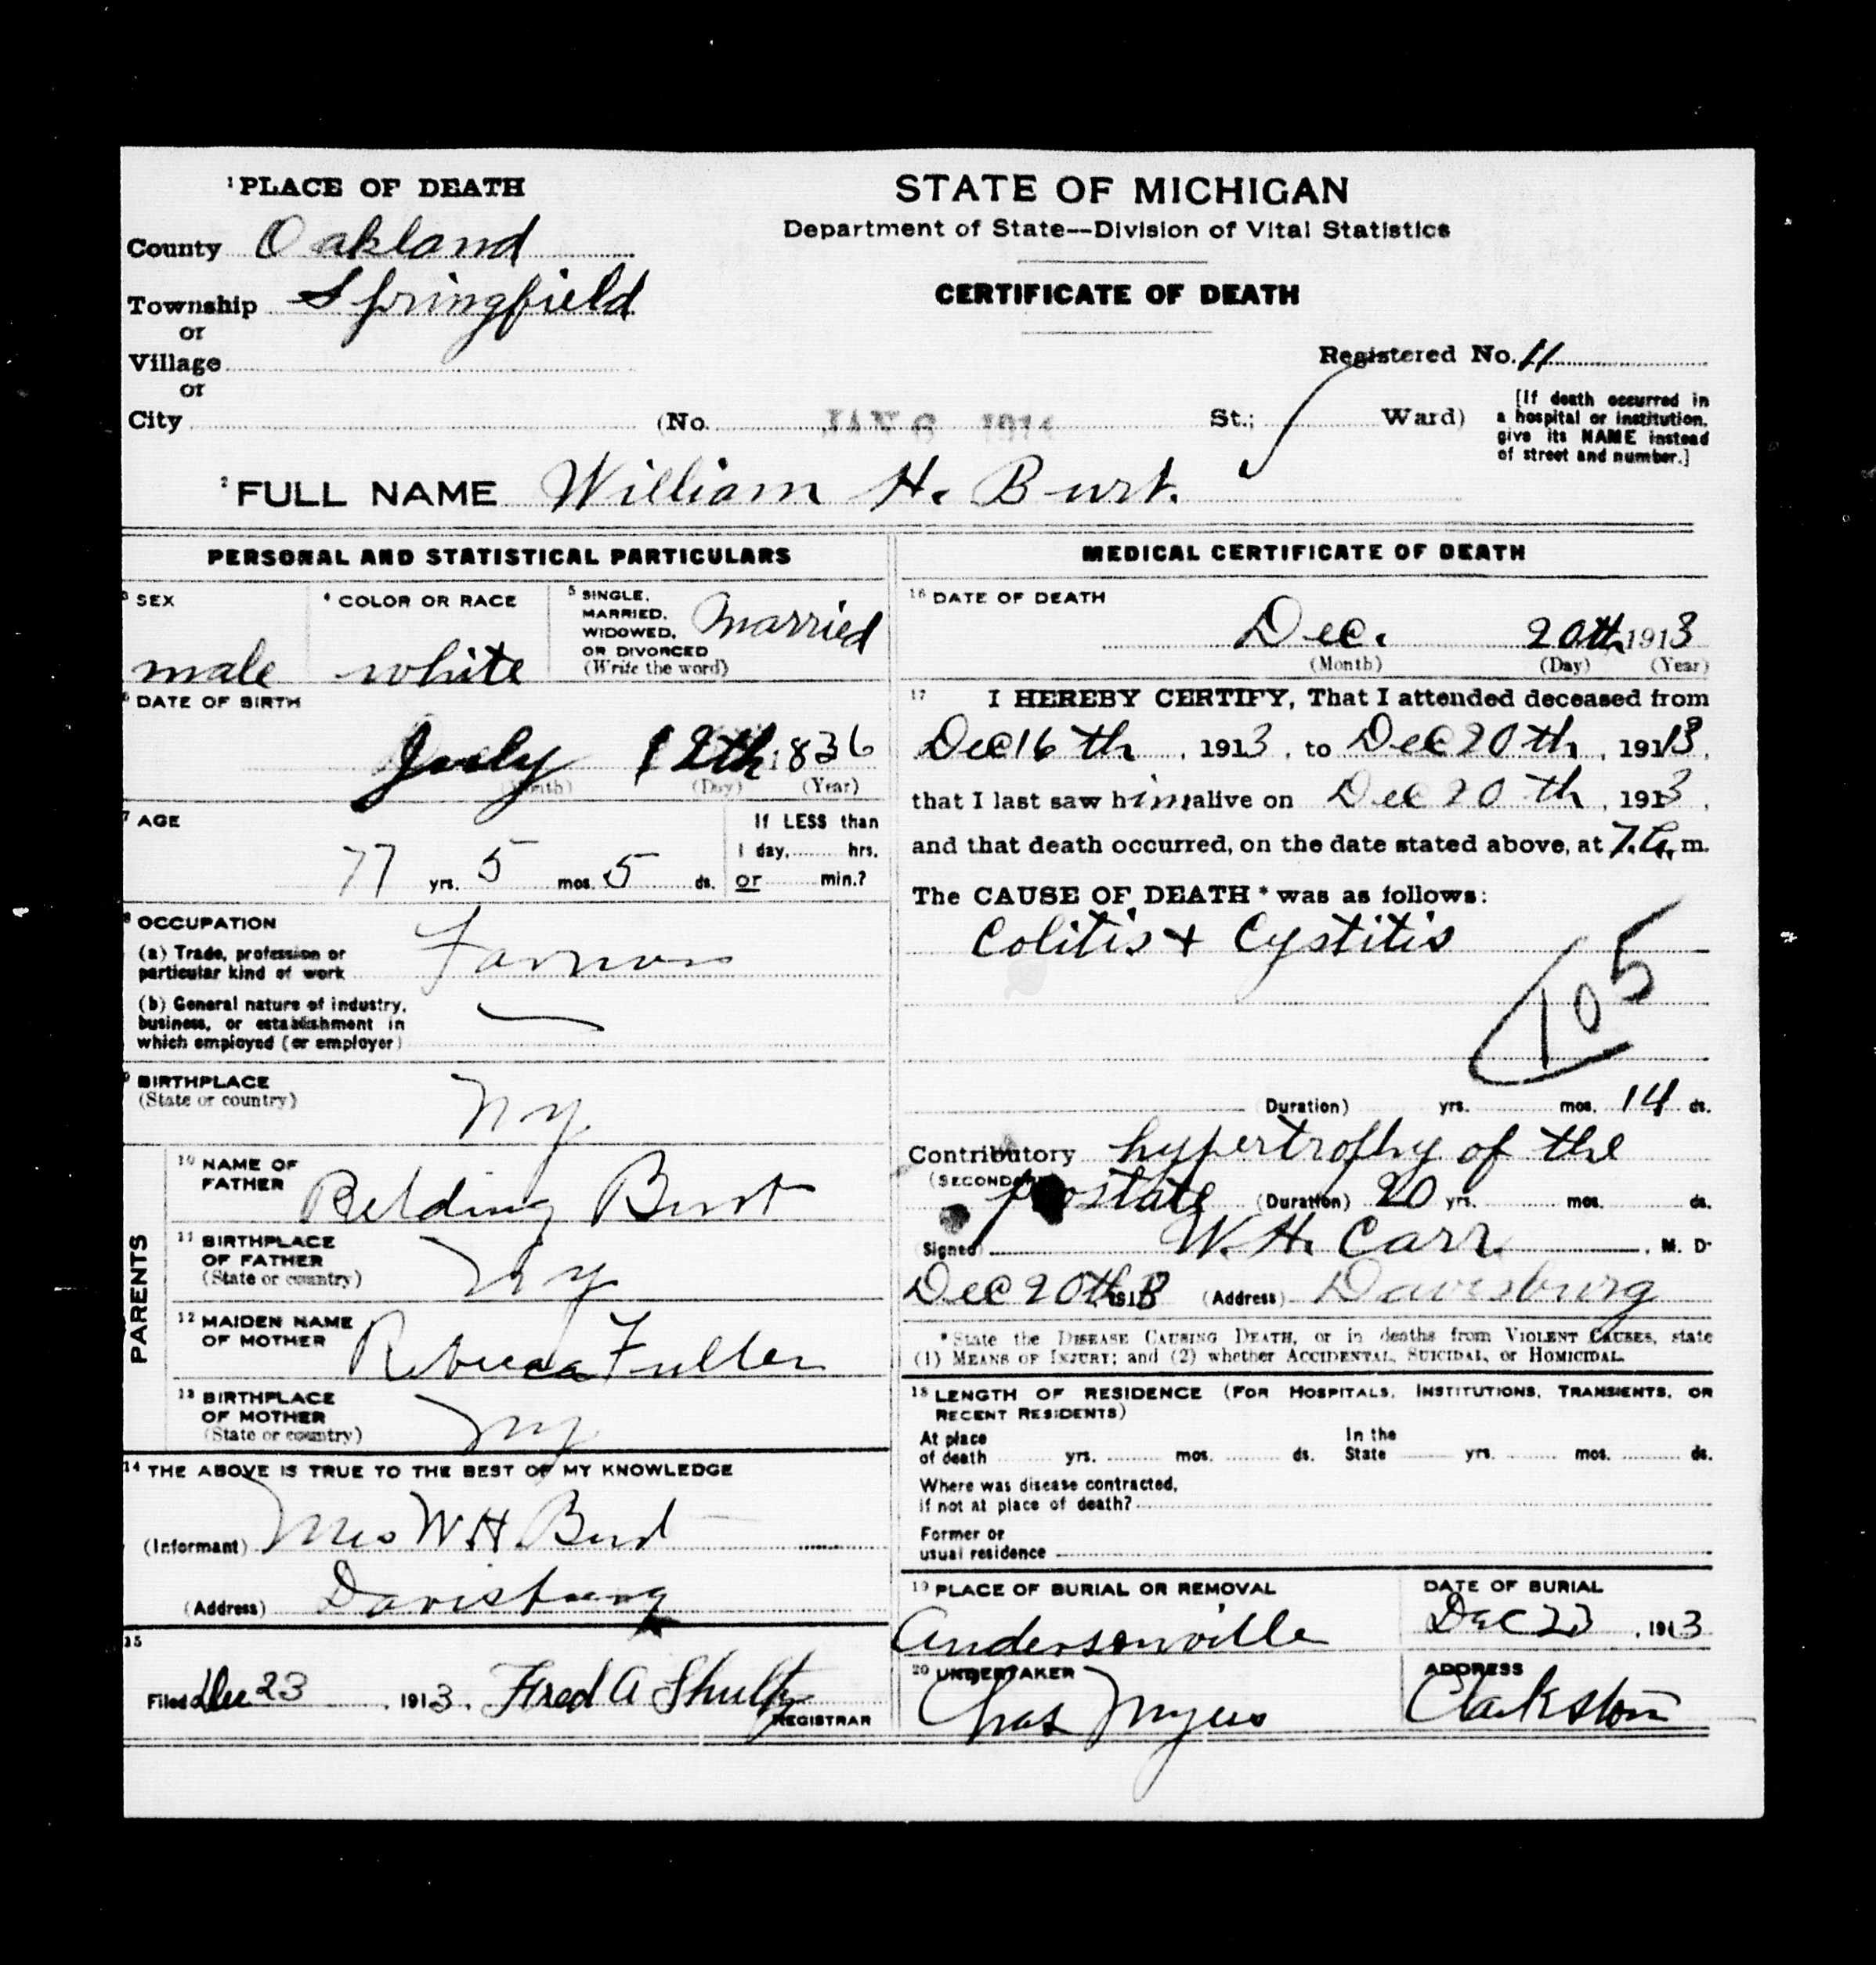 1 PLACE OF DEATH
STATE OF MICHIGAN
Department of State—Division of Vital Statistics
County Oakland
Township Springfield
CERTIFICATE OF DEATH
or
Village
or
Registered No. 11
City (No. JAN 6 1914 St.; Ward)
[If death occurred in
a hospital or institution,
give its NAME instead
of street and number.]
2 FULL NAME William H. Burt.
PERSONAL AND STATISTICAL PARTICULARS
3 SEX
male
4 COLOR OR RACE
white
5 SINGLE,
MARRIED,
WIDOWED,
OR DIVORCED
(Write the word)
Married
6 DATE OF BIRTH
July 12th 1836
(Month) (Day) (Year)
7 AGE
77 yrs. 5 mos. 5 ds.
If LESS than
1 day, hrs.
or min.?
8 OCCUPATION
(a) Trade, profession or
particular kind of work
Farmer
(b) General nature of industry,
business, or establishment in
which employed (or employer)
9 BIRTHPLACE
(State or country)
N y.
PARENTS
10 NAME OF
FATHER
Belding Burt
11 BIRTHPLACE
OF FATHER
(State or country)
N y
12 MAIDEN NAME
OF MOTHER
Rebecca Fuller
13 BIRTHPLACE
OF MOTHER
(State or country)
N y
14 THE ABOVE IS TRUE TO THE BEST OF MY KNOWLEDGE
(Informant) Mrs W H Burt
(Address) Davisburg
15
Filed Dec 23, 1913. Fred A Shultz
REGISTRAR
MEDICAL CERTIFICATE OF DEATH
16 DATE OF DEATH
Dec. 20th 1913
(Month) (Day) (Year)
17 I HEREBY CERTIFY, That I attended deceased from
Dec 16th, 1913, to Dec 20th, 1913,
that I last saw him alive on Dec 20th, 1913,
and that death occurred, on the date stated above, at 7. a. m.
The CAUSE OF DEATH* was as follows:
Colitis + Cystitis
105
(Duration) yrs. mos. 14 ds.
Contributory hypertrophy of the
(SECONDARY) prostate (Duration) 20 yrs. mos. ds.
Signed W. H. Carr, M. D.
Dec 20th 1913 (Address) Davisburg
*State the DISEASE CAUSING DEATH, or in deaths from VIOLENT CAUSES, state
(1) MEANS OF INJURY; and (2) whether ACCIDENTAL, SUICIDAL, or HOMICIDAL.
18 LENGTH OF RESIDENCE (FOR HOSPITALS, INSTITUTIONS, TRANSIENTS, OR
RECENT RESIDENTS)
At place
of death yrs. mos. ds.
In the
State yrs. mos. ds.
Where was disease contracted,
if not at place of death?
Former or
usual residence
19 PLACE OF BURIAL OR REMOVAL
Andersonville
DATE OF BURIAL
Dec 23, 1913
20 UNDERTAKER
Chas Myers
ADDRESS
Clarkston